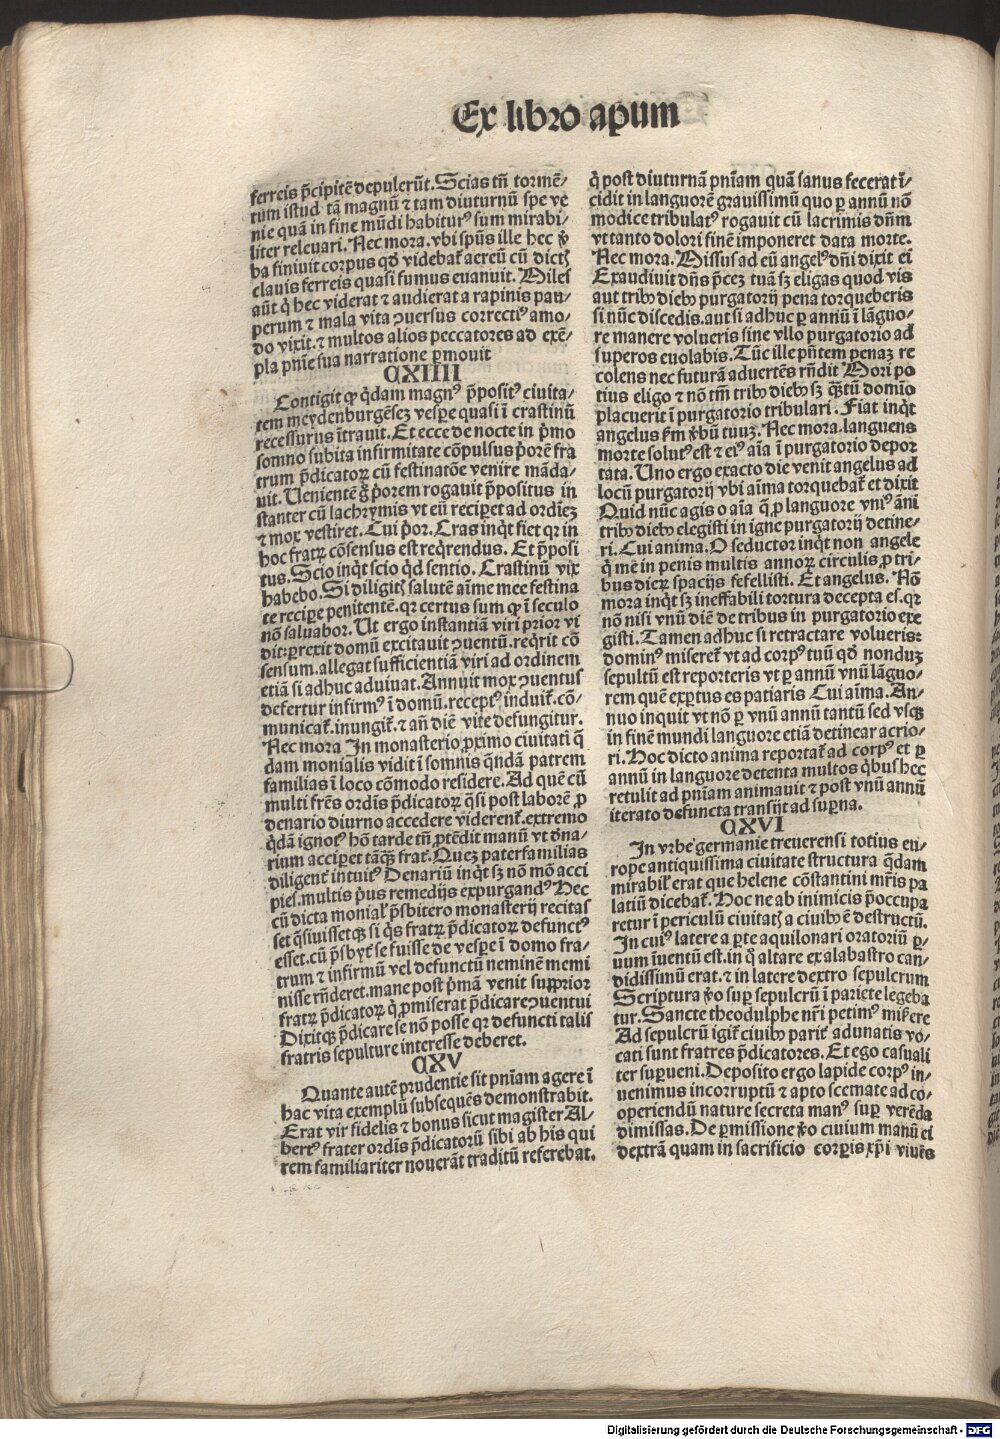 Ex libro apum
ferreis p̄cipitē depulerūt. Scias tn̄ tormē⸗
tum istud tā magnū ⁊ tam diuturnū spe ve
nie quā in fine mūdi habiturꝰ sum mirabi⸗
liter releuari. Nec mora. vbi spūs ille hec v̓
ba finiuit corpus qḋ videbat᷑ aereū cū dictꝭ
clauis ferreis quasi fumus euanuit. Miles
aūt q̇ hec viderat ⁊ audierat a rapinis pau⸗
perum ⁊ mala vita ꝯuersus correctiꝰ amo⸗
do vixit. ⁊ multos alios peccatores ad exē⸗
pla pn̄ie sua narratione ꝑmouit
CXIIII
Contigit ꝙ q̇dam magnꝰ p̄positꝰ ciuita⸗
tem meydenburgēseꝫ vesꝑe quasi ī crastinū
recessurus ītrauit. Et ecce de nocte in p̓mo
somno subita infirmitate cōpulsus p̓orē fra
trum p̄dicatoꝝ cū festinatōe venire māda⸗
uit. Uenientē g̊ p̓orem rogauit p̄positus in
stanter cū lachrymis vt eū reciꝑet ad ordīeꝫ
⁊ mox vestiret. Cui p̓or. Cras inq̇t fiet qꝛ in
hoc fratꝝ cōsensus est req̇rendus. Et p̄posi
tus. Scio inq̇t scio qḋ sentio. Crastinū vix
habebo. Si diligitꝭ salutē aīme mee festina
te reciꝑe penitentē. qꝛ certus sum ꝙ ī seculo
nō saluabor. Ut ergo instantiā viri prior vi
dit: ꝑrexit domū excitauit ꝯuentū. req̇rit cō
sensum. allegat sufficientiā viri ad ordinem
etiā si adhuc aduiuat. Annuit mox ꝯuentus
defertur infirmꝰ ī domū. receptꝰ induit᷑. cō⸗
municat᷑. inungit᷑. ⁊ an̄ diē vite defungitur.
Nec mora In monasterio ꝓximo ciuitati q̄
dam monialis vidit ī somnis q̄ndā patrem
familias ī loco cōmodo residere. Ad quē cū
multi fr̄es ordīs p̄dicatoꝝ q̄si post laborē ꝓ
denario diurno accedere viderent᷑. extremo
q̇dā ignotꝰ hō tarde tn̄ ꝓtēdit manū vt dṅa⸗
rium acciꝑet tāqꝫ frat᷑. Queꝫ paterfamilias
diligent᷑ intuitꝰ Denariū inq̇t sꝫ nō mō acci
pies. multis p̓us remedijs expurgandꝰ Hec
cū dicta monial᷑ p̄sbitero monasterij recitas
set q̄siuissetqꝫ si q̇s fratꝝ p̄dicatoꝝ defunctꝰ
esset. cū p̄sbyt᷑ se fuisse de vesꝑe ī domo fra⸗
trum ⁊ infirmū vel defunctū neminē memi
nisse rn̄deret. mane post p̓mā venit supprior
fratꝝ p̄dicatoꝝ q̇ ꝓmiserat p̄dicare ꝯuentui
Dixitqꝫ p̄dicare se nō posse qꝛ defuncti talis
fratris sepulture interesse deberet.
CXV
Quante autē prudentie sit pn̄iam agere ī
hac vita exemplū subsequēs demonstrabit.
Erat vir fidelis ⁊ bonus sicut magister Al⸗
bertꝰ frater ordīs p̄dicatorū sibi ab his qui
rem familiariter nouerāt traditū referebat.
q̇ post diuturnā pn̄iam quā sanus fecerat ī⸗
cidit in languorē grauissimū quo ꝑ annū nō
modice tribulatꝰ rogauit cū lacrimis dn̄m
vt tanto dolori finē imponeret data morte.
Nec mora. Missus ad eū angelꝰ dn̄i dixit ei
Exaudiuit dn̄s p̄ceꝫ tuā sꝫ eligas quod vis
aut tribꝰ diebꝰ purgatorij pena torqueberis
si nūc discedis. aut si adhuc ꝑ annū ī lāguo⸗
re manere volueris sine vllo purgatorio ad
superos euolabis. Tūc ille pn̄tem penaꝫ re
colens nec futurā aduertēs rn̄dit Mori po
tius eligo ⁊ nō tm̄ tribꝰ diebꝰ sꝫ qꝫtū domīo
placuerit ī purgatorio tribulari. Fiat inq̇t
angelus ẜm v̓bū tuuꝫ. Nec mora. languens
morte solutꝰ est ⁊ eiꝰ aīa ī purgatorio depor
tata. Uno ergo exacto die venit angelus ad
locū purgatorij vbi aīma torquebat᷑ et dixit
Quid nūc agis o aīa q̄ ꝓ languore vniꝰ āni
tribꝰ diebꝰ elegisti in igne purgatorij detine⸗
ri. Cui anima. O seductor inq̇t non angele
q̇ mē in penis multis annoꝝ circulis ꝓ tri⸗
bus dieꝝ spacijs fefellisti. Et angelus. Nō
mora inq̇t sꝫ ineffabili tortura decepta es. qꝛ
nō nisi vnū diē de tribus in purgatorio exe
gisti. Tamen adhuc si retractare volueris:
dominꝰ miseret᷑ vt ad corpꝰ tuū qḋ nonduꝫ
sepultū est reporteris vt ꝑ annū vnū lāguo⸗
rem quē exꝑtus es patiaris Cui aīma. An⸗
nuo inquit vt nō ꝑ vnū annū tantū sed vsqꝫ
in finē mundi languore etiā detinear acrio⸗
ri. Hoc dicto anima reportat᷑ ad corpꝰ et ꝑ
annū in languore detenta multos q̇bus hec
retulit ad pn̄iam animauit ⁊ post vnū annū
iterato defuncta transijt ad suꝑna.
CXVI
In vrbe germanie treuerensi totius eu⸗
rope antiquissima ciuitate structura q̄dam
mirabil᷑ erat que helene cōstantini mr̄is pa
latiū dicebat᷑. Hoc ne ab inimicis p̄occupa
retur ī periculū ciuitatꝭ a ciuibꝰ ē destructū.
In cuiꝰ latere a ꝑte aquilonari oratoriū ꝑ⸗
uum īuentū est. in q̊ altare ex alabastro can⸗
didissimū erat. ⁊ in latere dextro sepulcrum
Scriptura v̊o suꝑ sepulcrū ī pariete legeba
tur. Sancte theodulphe nr̄i petimꝰ mis̓ere
Ad sepulcrū igit᷑ ciuibꝰ parit᷑ adunatis vo⸗
cati sunt fratres p̄dicatores. Et ego casuali
ter suꝑueni. Deposito ergo lapide corpꝰ in⸗
uenimus incorruptū ⁊ apto scemate ad co⸗
operiendū nature secreta manꝰ suꝑ verēda
dimissas. De ꝑmissione v̊o ciuium manū ei
dextrā quam in sacrificio corꝑis xp̄i viuēs
Digitalisierung gefördert durch die Deutsche Forschungsgemeinschaft - DFG